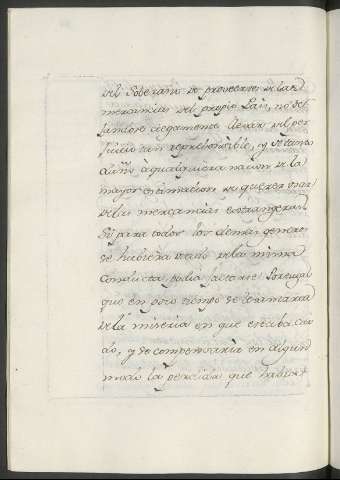 del Soberano de proveerse de las
mercancias del propio Pais, no de
ciegamente llevar del per
juicio tan reprehensible, y de tanto
daño à qualquiera nacion de la
mayor estimacion de querer usar
de las mercancias estrangeras.
Si para todos los demas generos
se hubiera usado de la misma
conducta, podia Portugal
que en poco tiempo se
de la miseria en que estaba
do, y se compensaria en algun
modo la perdida que